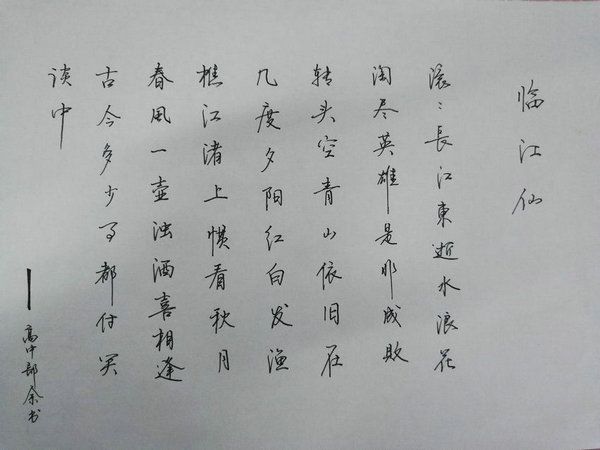 临江仙
滚〻長江東逝水浪花
淘尽英雄是非成败
转头空青山依旧在
几度夕阳红白发渔
樵江渚上惯看秋月
春风一壶浊酒喜相逢
古今多少事都付笑
谈中
高中部余书